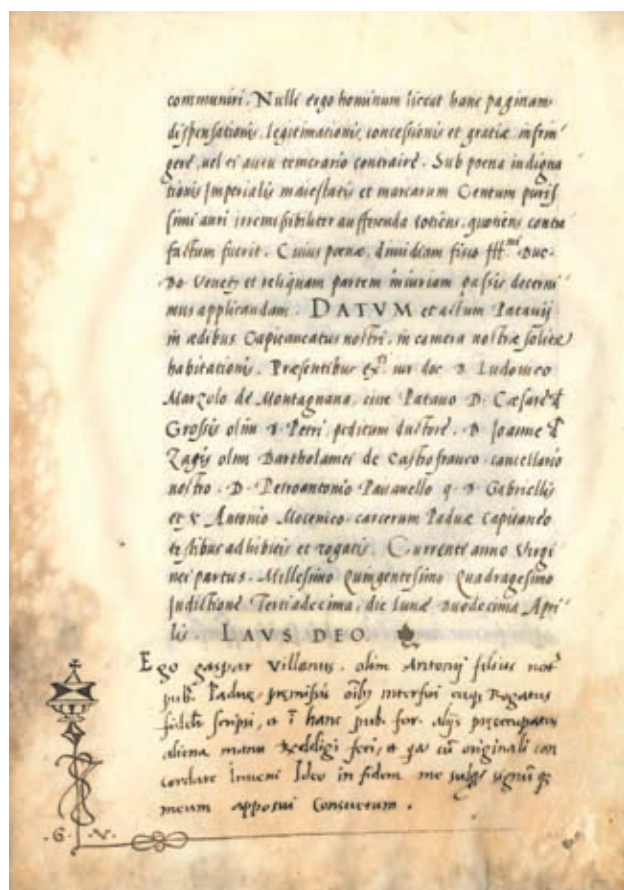 communiri. Nulli ergo hominum liceat hanc paginam
dispensationis, legitimationis, concessionis et gratiæ infrin
gere, uel ei ausu temerario contraire. Sub poena indigna
tionis Imperialis maiestatis et marcarum Centum puris
simi auri irremisibiliter aufferenda totiens, quotiens contra
factum fuerit. Cuius poenæ, dimidiam fisco Duc.
Do Venet et reliquam partem iniuriam passis decerni
mus applicandam. DATVM et actum Patauij
in ædibus Capitaneatus nostri, in camera nostræ solitæ
habitationis. Præsentibus iur doc D Ludouico
Marzolo de Montagnana, ciue Patauo D. Cæsare d
Grossis olim D Petri, peditum ductore. D Joanne d
Zagis olim Bartholamei de Castrofranco cancellario
nostro. D. Petroantonio Pauanello q. D Gabriellis
et Antonio Mocenico carcerum Paduæ Capitaneo
testibus adhibitis et rogatis. Currente anno Virgi
nei partus. Millesimo Quingentesimo Quadragesimo
Indictione Tertiadecima, die lunæ Duodecima Apri
lis. LAVS DEO.
Ego gaspar Villanus olim Antonij filius not
pub. Paduæ premissis interfui Rogatus
fideli scripsi, et hanc pub. for. alijs preoccupatus
aliena manu Reddigi feci, et originali con
cordare Inueni Ideo in fidem me signum
meum apposui Consuetum.
.G. .V.